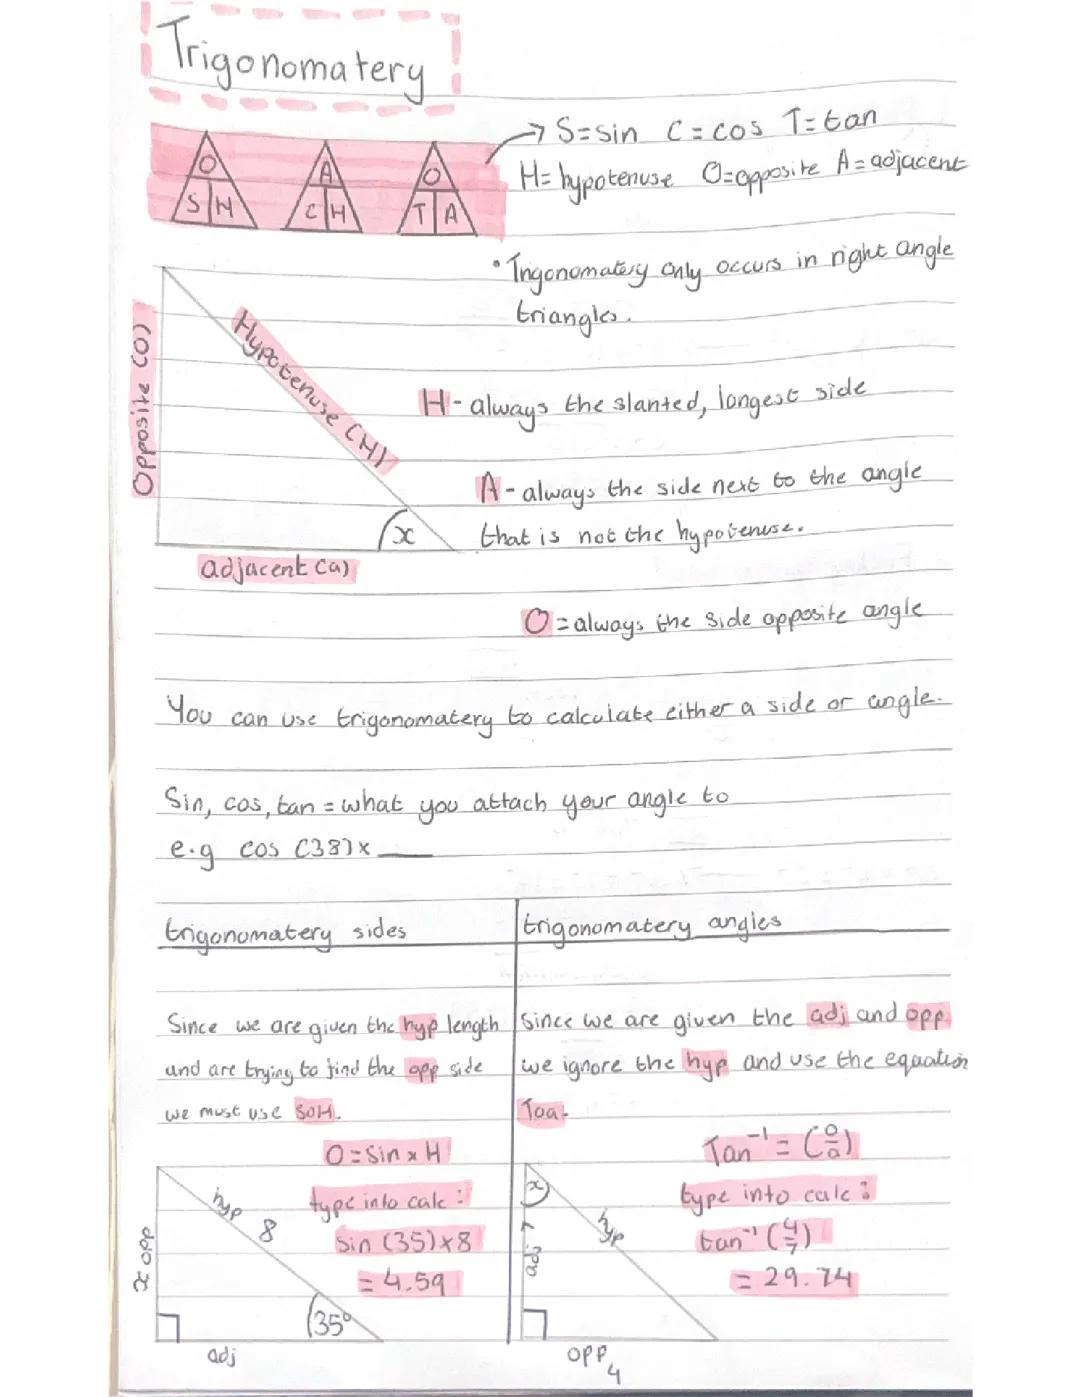 Trigonomatery
O
S H
A
C H
O
T A
→ S=sin C=cos T=tan
H=hypotenuse O=opposite A=adjacent
• Trigonomatery only occurs in right angle
triangles.
Opposite (O)
Hypotenuse (H)
x
adjacent (a)
H - always the slanted, longest side
A - always the side next to the angle
that is not the hypotenuse.
O = always the side opposite angle
You can use trigonomatery to calculate either a side or angle.
Sin, cos, tan = what you attach your angle to
e.g cos (38)x ____
trigonomatery sides
Since we are given the hyp length
and are trying to find the opp side
we must use SOH.
O=Sin x H
type into calc:
Sin (35)x8
= 4.59
x opp
hyp
8
35°
adj
trigonomatery angles
Since we are given the adj and opp
we ignore the hyp and use the equation
Toa.
Tan⁻¹ = (o/a)
type into calc:
tan⁻¹ (4/7)
= 29.74
x
adj 7
hyp
opp 4